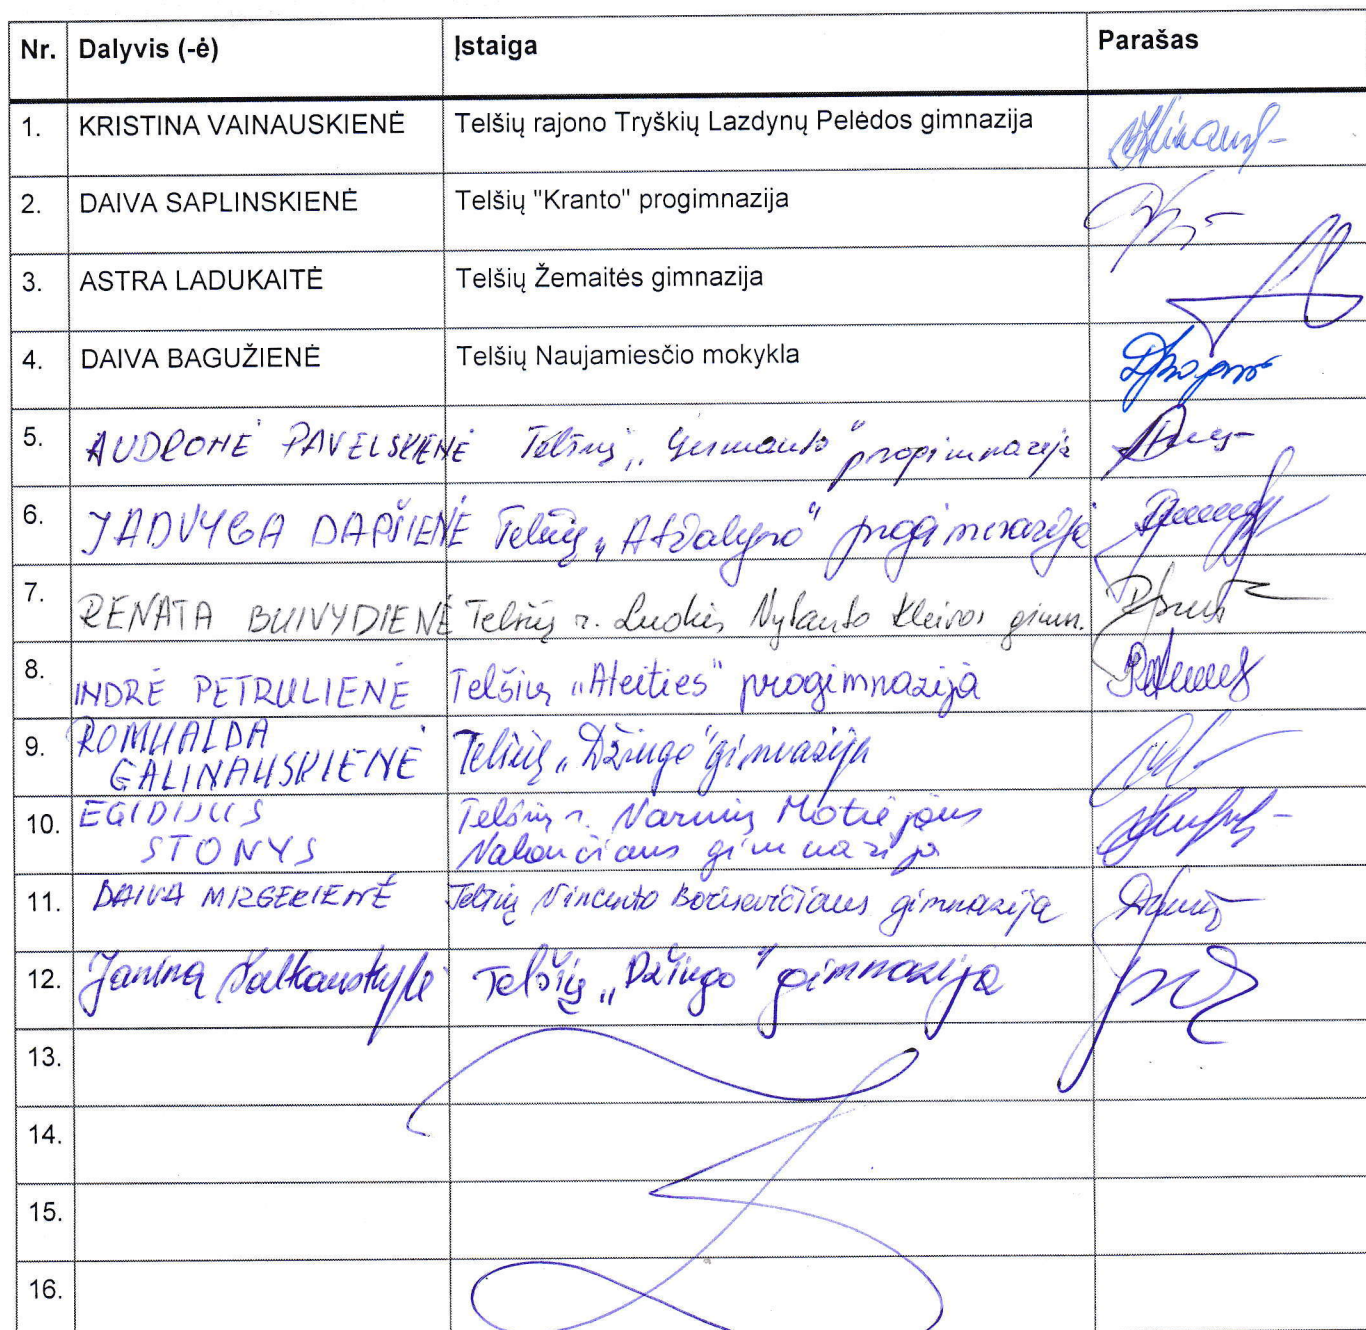 Nr. Dalyvis (-ė) Įstaiga Parašas
1. KRISTINA VAINAUSKIENĖ Telšių rajono Tryškių Lazdynų Pelėdos gimnazija
2. DAIVA SAPLINSKIENĖ Telšių "Kranto" progimnazija
3. ASTRA LADUKAITĖ Telšių Žemaitės gimnazija
4. DAIVA BAGUŽIENĖ Telšių Naujamiesčio mokykla
5. AUDRONĖ PAVELSKIENĖ Telšių „Germanto" progimnazija
6. JADVYGA DAPŠIENĖ Telšių „Atžalyno" progimnazija
7. RENATA BUIVYDIENĖ Telšių r. Luokės Vytauto Kleivos gimn.
8. INDRĖ PETRULIENĖ Telšių „Ateities" progimnazija
9. ROMUALDA
GALINAUSKIENĖ Telšių „Džiugo" gimnazija
10. EGIDIJUS Telšių r. Varnių Motiejaus
STONYS Valančiaus gimnazija
11. DAIVA MIZGERIENĖ Telšių Vincento Borisevičiaus gimnazija
12. Janina Salkauskytė Telšių „Džiugo" gimnazija
13.
14.
15.
16.